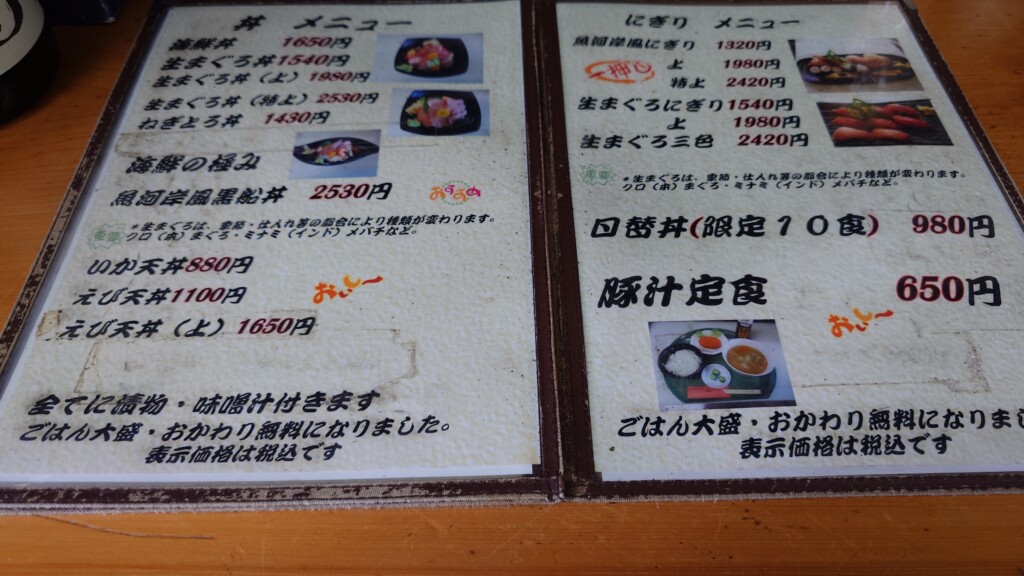 丼 メニュー
海鮮丼 1650円
生まぐろ丼1540円
生まぐろ丼(上)1980円
生まぐろ丼(特上)2530円
ねぎとろ丼 1430円
海鮮の極み
魚河岸風黒船丼 2530円 おすすめ
*生まぐろは、季節・仕入れ等の都合により種類が変わります。
クロ(本)まぐろ・ミナミ(インド)メバチなど。
いか天丼880円
えび天丼1100円
おいしー
えび天丼(上)1650円
全てに漬物・味噌汁付きます
ごはん大盛・おかわり無料になりました。
表示価格は税込です
にぎり メニュー
魚河岸風にぎり 1320円
一押し 上 1980円
特上 2420円
生まぐろにぎり1540円
上 1980円
生まぐろ三色 2420円
*生まぐろは、季節・仕入れ等の都合により種類が変わります。
クロ(本)まぐろ・ミナミ(インド)メバチなど。
日替丼(限定10食) 980円
豚汁定食 650円
おいしー
ごはん大盛・おかわり無料になりまし
表示価格は税込です